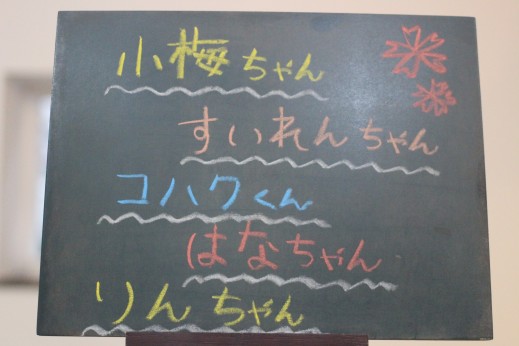 小梅ちゃん
すいれんちゃん
コハクくん
はなちゃん
りんちゃん